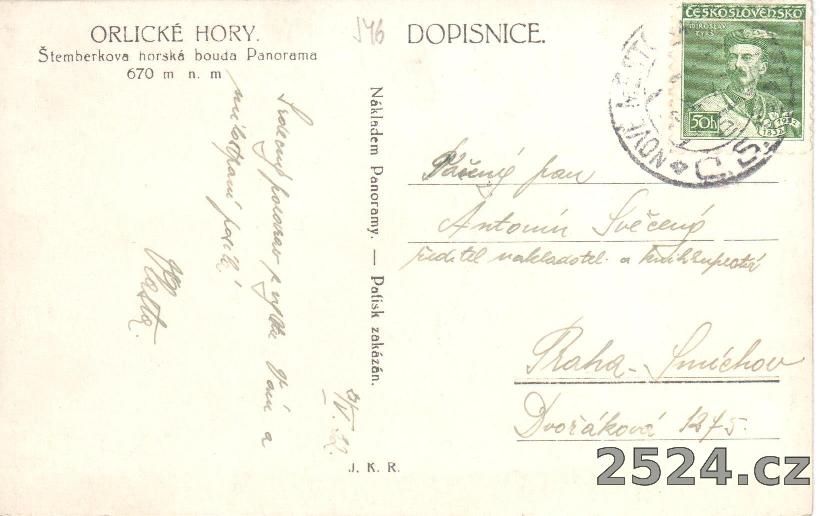 ORLICKÉ HORY.
Štemberkova horská bouda Panorama
670 m n. m
546
DOPISNICE.
ČESKOSLOVENSKO
MIROSLAV TYRŠ
50h
1832
1932
NOVÉ MĚSTO
Č.S.
Srdečný pozdrav z výletu Vám a
milostpaní posílá
Nákladem Panoramy. — Patisk zakázán.
J. K. R.
Vážený pan
Antonín Svěcený
ředitel nakladatel. a knihkupectví
Praha - Smíchov
Dvořáková 1275.
2524.cz